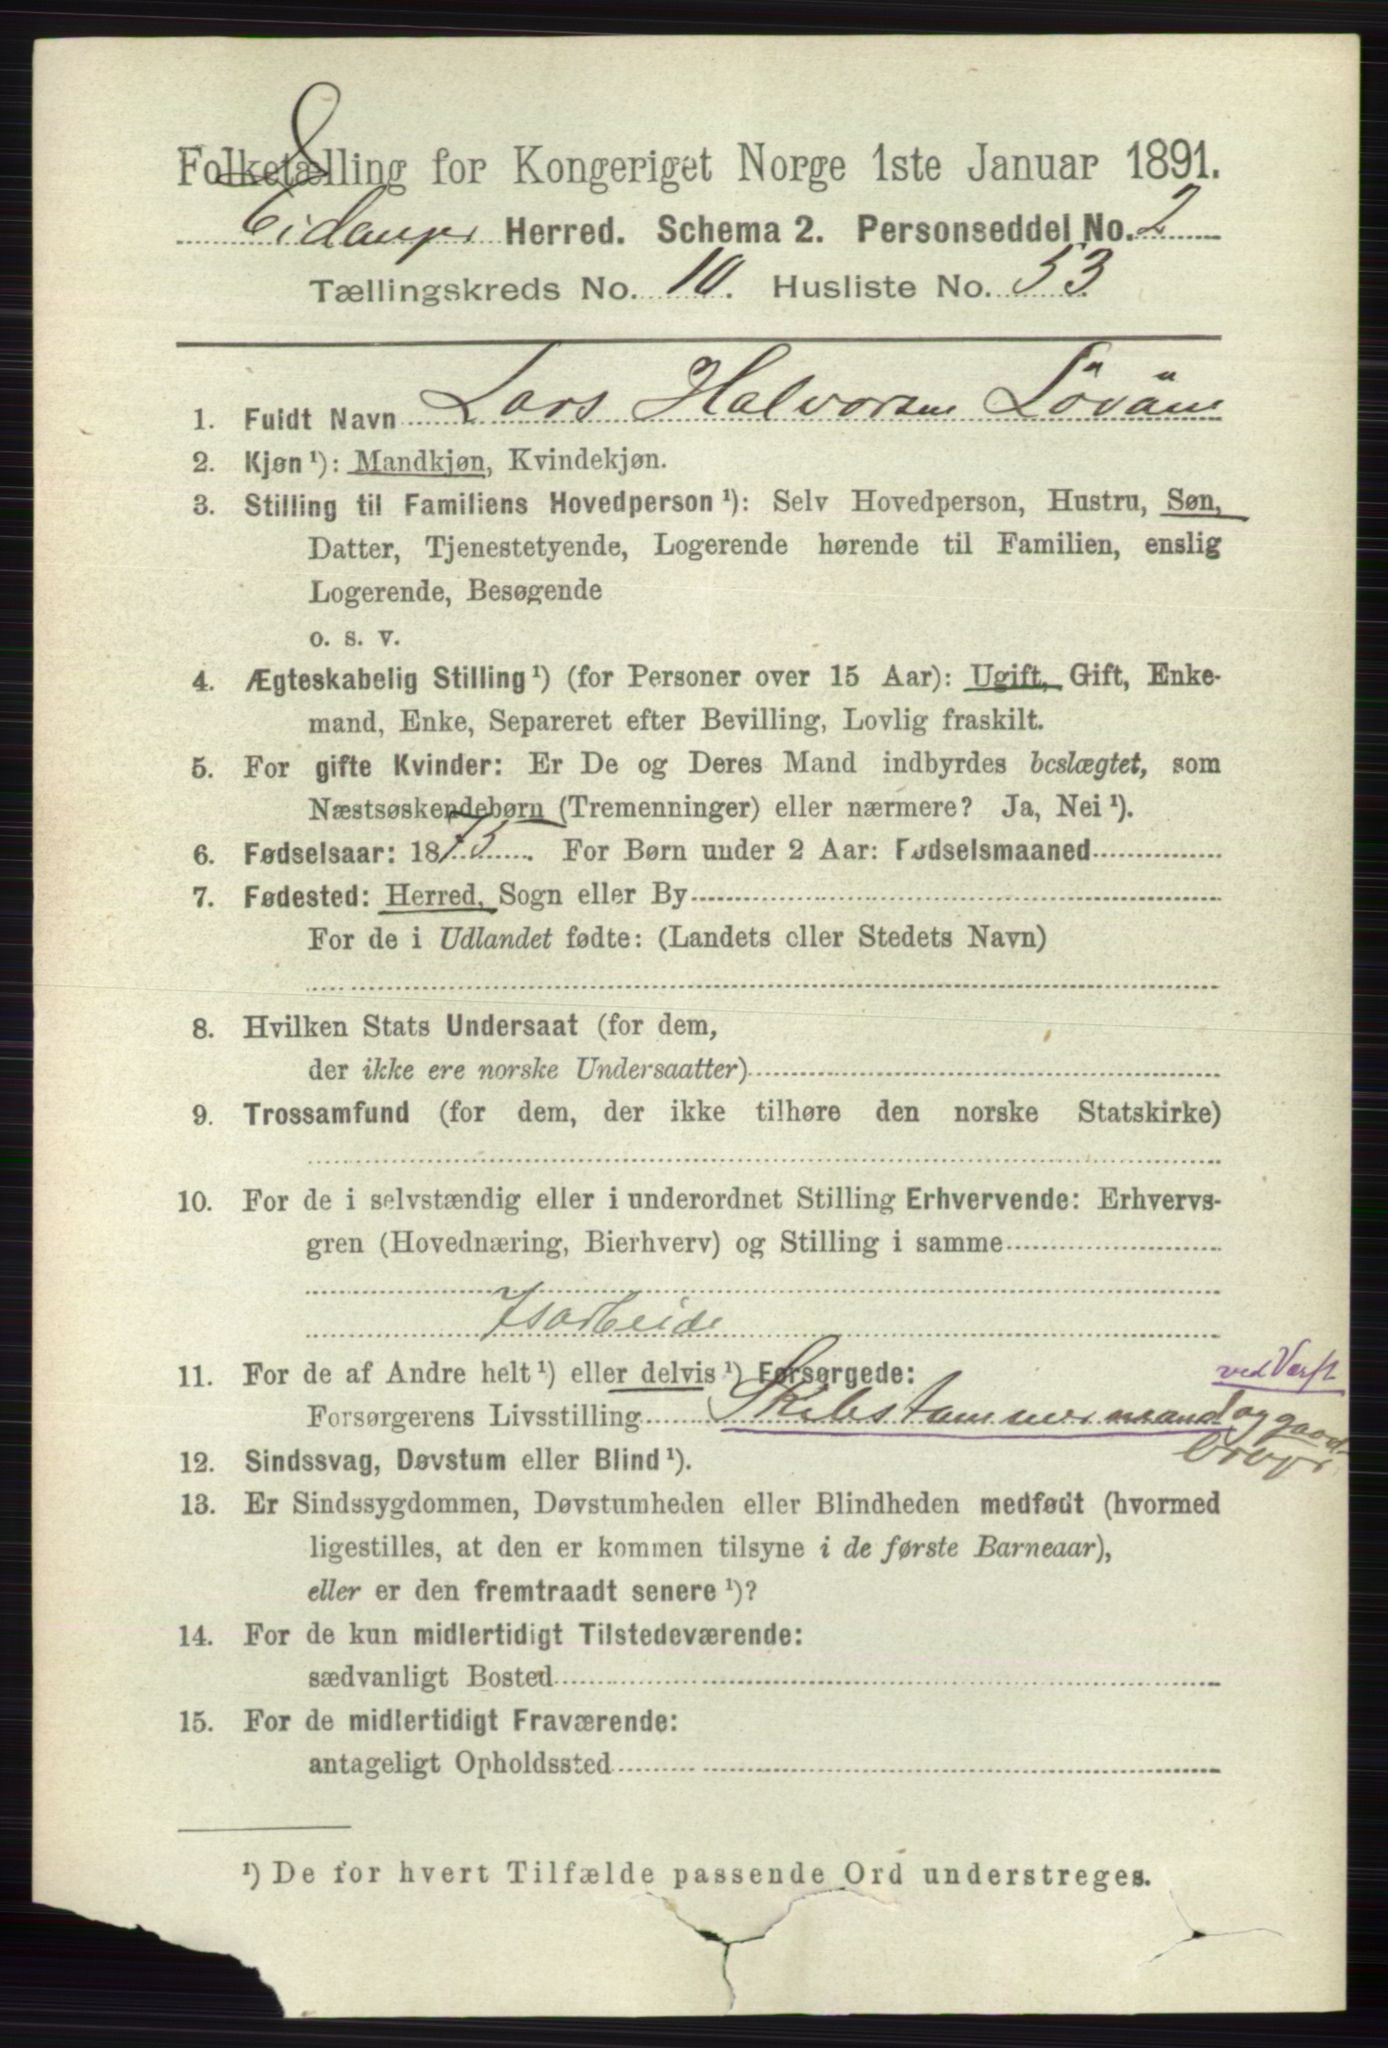 8
Folketælling for Kongeriget Norge 1ste Januar 1891.
Eidanger Herred. Schema 2. Personseddel No. 2
Tællingskreds No. 10. Husliste No. 53
1. Fuldt Navn Lars Halvorsen
2. Kjøn ¹): Mandkjøn, Kvindekjøn.
3. Stilling til Familiens Hovedperson ¹): Selv Hovedperson, Hustru, Søn,
Datter, Tjenestetyende, Logerende hørende til Familien, enslig
Logerende, Besøgende
o. s. v.
4. Ægteskabelig Stilling ¹) (for Personer over 15 Aar): Ugift, Gift, Enke-
mand, Enke, Separeret efter Bevilling, Lovlig fraskilt.
5. For gifte Kvinder: Er De og Deres Mand indbyrdes beslægtet, som
Næstsøskendebørn (Tremenninger) eller nærmere? Ja, Nei ¹).
6. Fødselsaar: 1873. For Børn under 2 Aar: Fødselsmaaned
7. Fødested: Herred, Sogn eller By
For de i Udlandet fødte: (Landets eller Stedets Navn)
8. Hvilken Stats Undersaat (for dem,
der ikke ere norske Undersaatter)
9. Trossamfund (for dem, der ikke tilhøre den norske Statskirke)
10. For de i selvstændig eller i underordnet Stilling Erhvervende: Erhvervs-
gren (Hovednæring, Bierhverv) og Stilling i samme
Isarbeide
11. For de af Andre helt ¹) eller delvis ¹) Forsørgede:
ved Værft
Forsørgerens Livsstilling Skibstømmermand og gaard-
bruger
12. Sindssvag, Døvstum eller Blind ¹).
13. Er Sindssygdommen, Døvstumheden eller Blindheden medfødt (hvormed
ligestilles, at den er kommen tilsyne i de første Barneaar),
eller er den fremtraadt senere ¹)?
14. For de kun midlertidigt Tilstedeværende:
sædvanligt Bosted
15. For de midlertidigt Fraværende:
antageligt Opholdssted
¹) De for hvert Tilfælde passende Ord understreges.